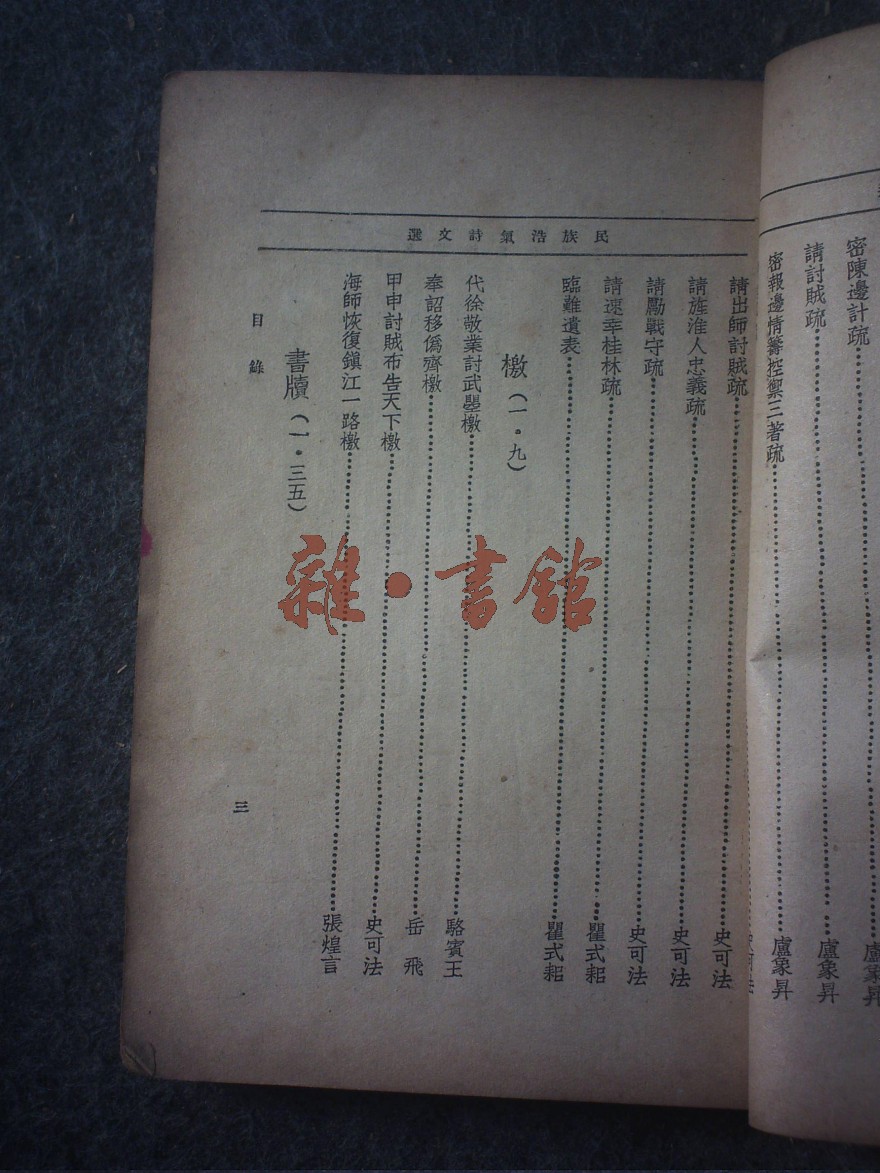 密陳邊計疏 盧象昇
請討賊疏 盧象昇
密報邊情籌控禦三著疏 盧象昇
民族浩氣詩文選
史可法
請出師討賊疏 史可法
請旌淮人忠義疏 史可法
請勵戰守疏 史可法
請速幸桂林疏 瞿式耜
臨難遺表 瞿式耜
檄（一·九）
代徐敬業討武曌檄 駱賓王
奉詔移僞齊檄 岳飛
甲申討賊布告天下檄 史可法
海師恢復鎮江一路檄 張煌言
書牘（一·三五）
目錄
三
雜·書館